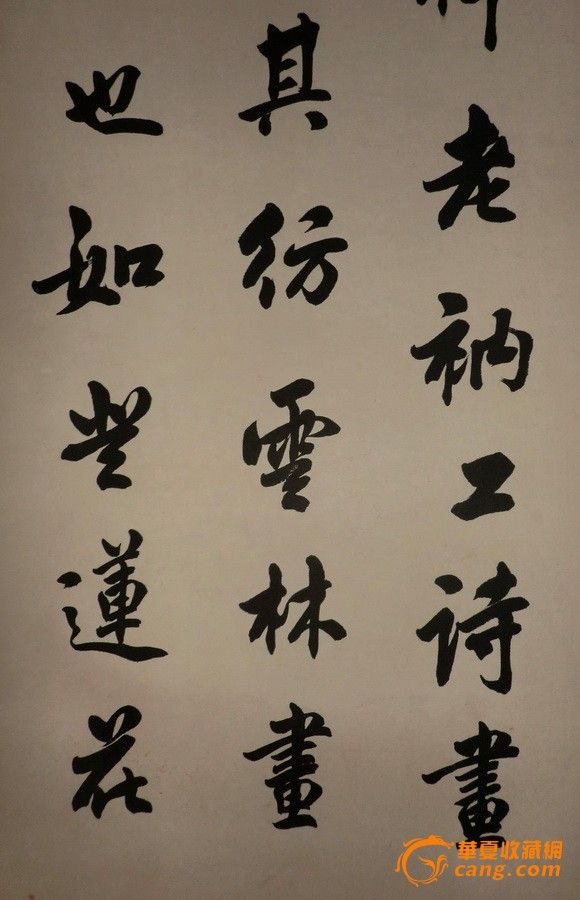 老衲工诗畫
其彷雲林畫
也如登蓮花
華夏收藏網
cang.com